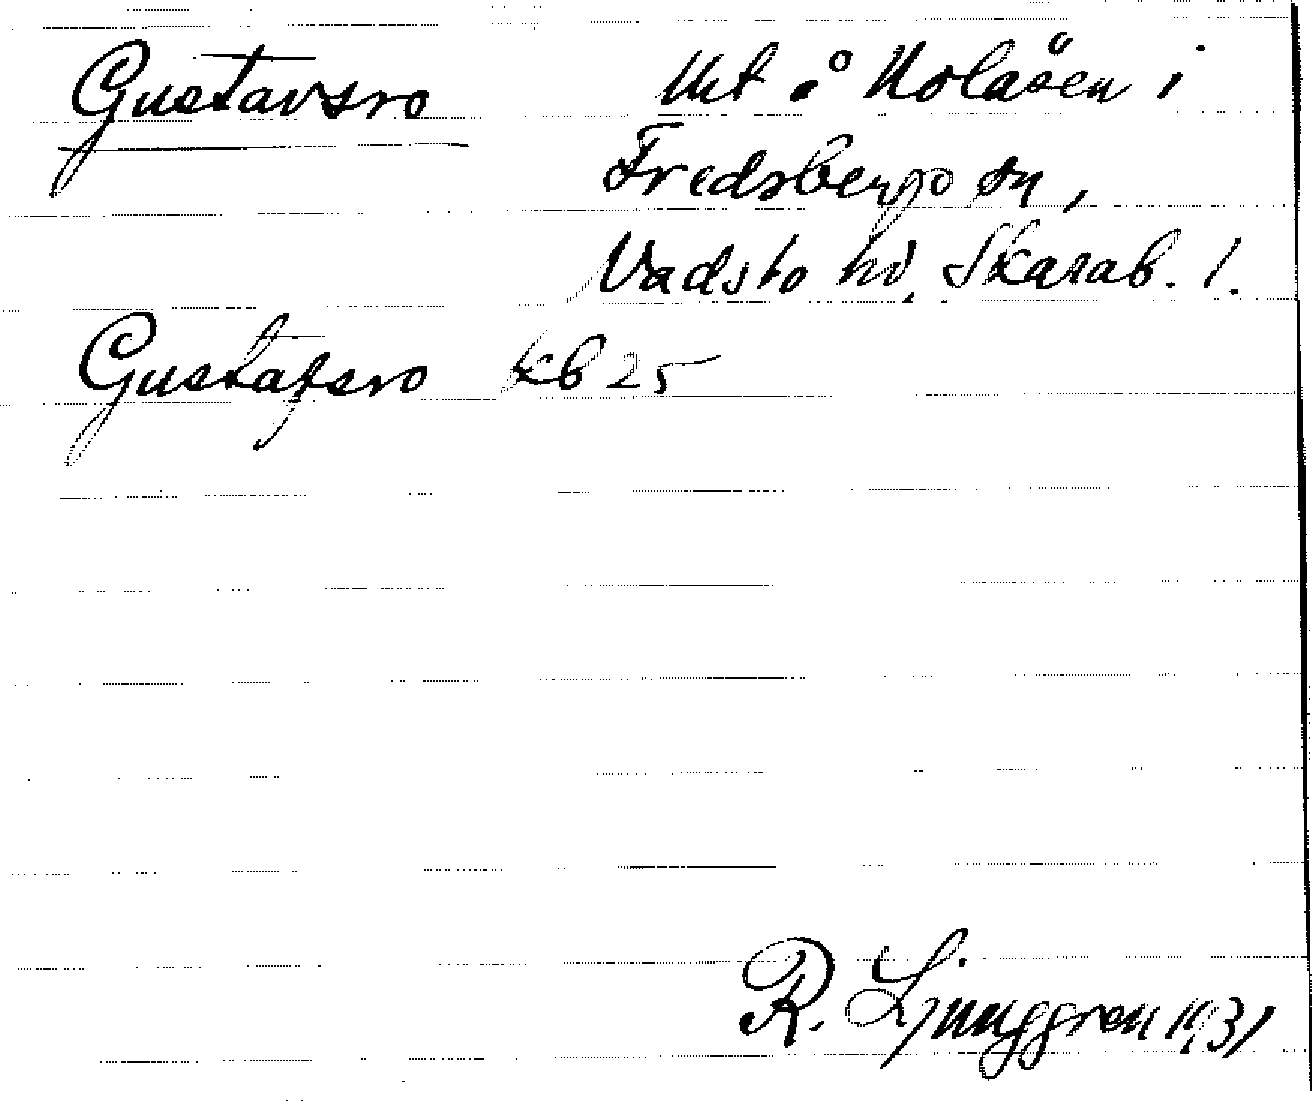 Gustavsro Utt å Nolåsen i
Fredsbergs sn,
Vadsbo hd, Skarab. l.
Gustafsro Kb 25
R. Ljunggren 1931